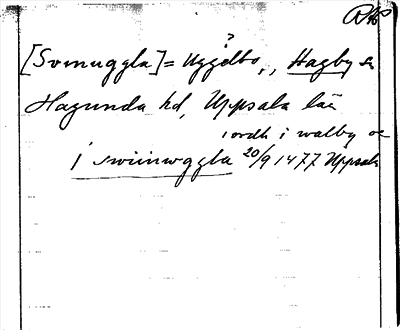 RAP
?
[Svinuggla] = Uggelbo, Hagby sn
Hagunda hd, Uppsala län
iordh i walby oc
i swiinwggla 20/9 1477 Uppsala